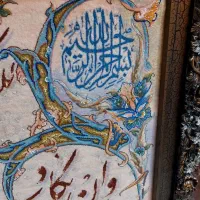 بسم الله الرحمن الرحیم
وان یکاد